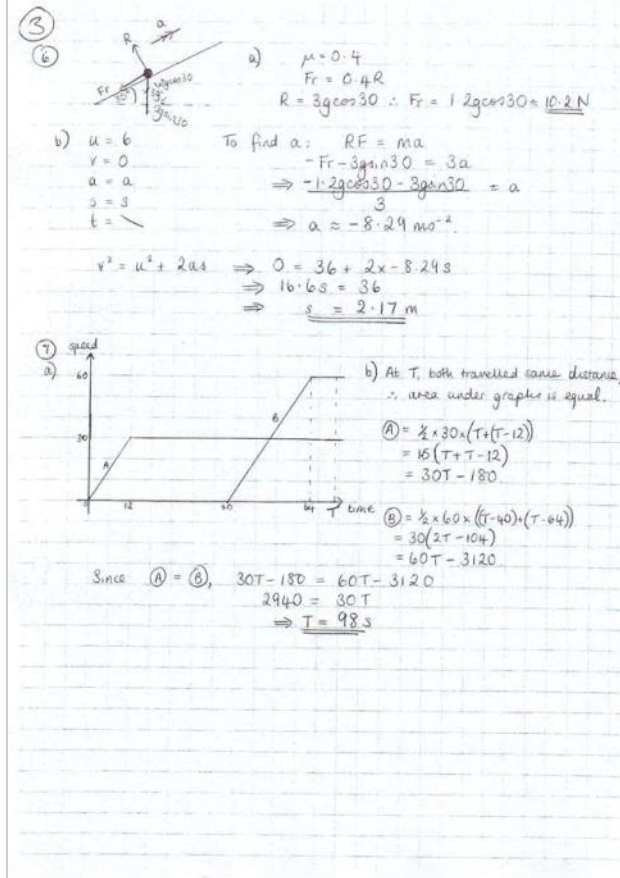 3
6
a
R
Fr
30°
3gcos30
3gsin30
a) μ = 0.4
Fr = 0.4R
R = 3gcos30 ∴ Fr = 1.2gcos30 ≈ 10.2 N
b) u = 6
v = 0
a = a
s = s
t = \
To find a: RF = ma
-Fr - 3gsin30 = 3a
⇒ -1.2gcos30 - 3gsin30 / 3 = a
⇒ a ≈ -8.29 ms⁻².
v² = u² + 2as ⇒ 0 = 36 + 2x - 8.29s
⇒ 16.6s = 36
⇒ s = 2.17 m
7
a)
speed
60
30
A
B
0 12 40 64 T time
b) At T, both travelled same distance,
∴ area under graphs is equal.
Ⓐ = ½ × 30 × (T+(T-12))
= 15(T+T-12)
= 30T - 180
Ⓑ = ½ × 60 × ((T-40)+(T-64))
= 30(2T - 104)
= 60T - 3120
Since Ⓐ = Ⓑ, 30T - 180 = 60T - 3120
2940 = 30T
⇒ T = 98 s